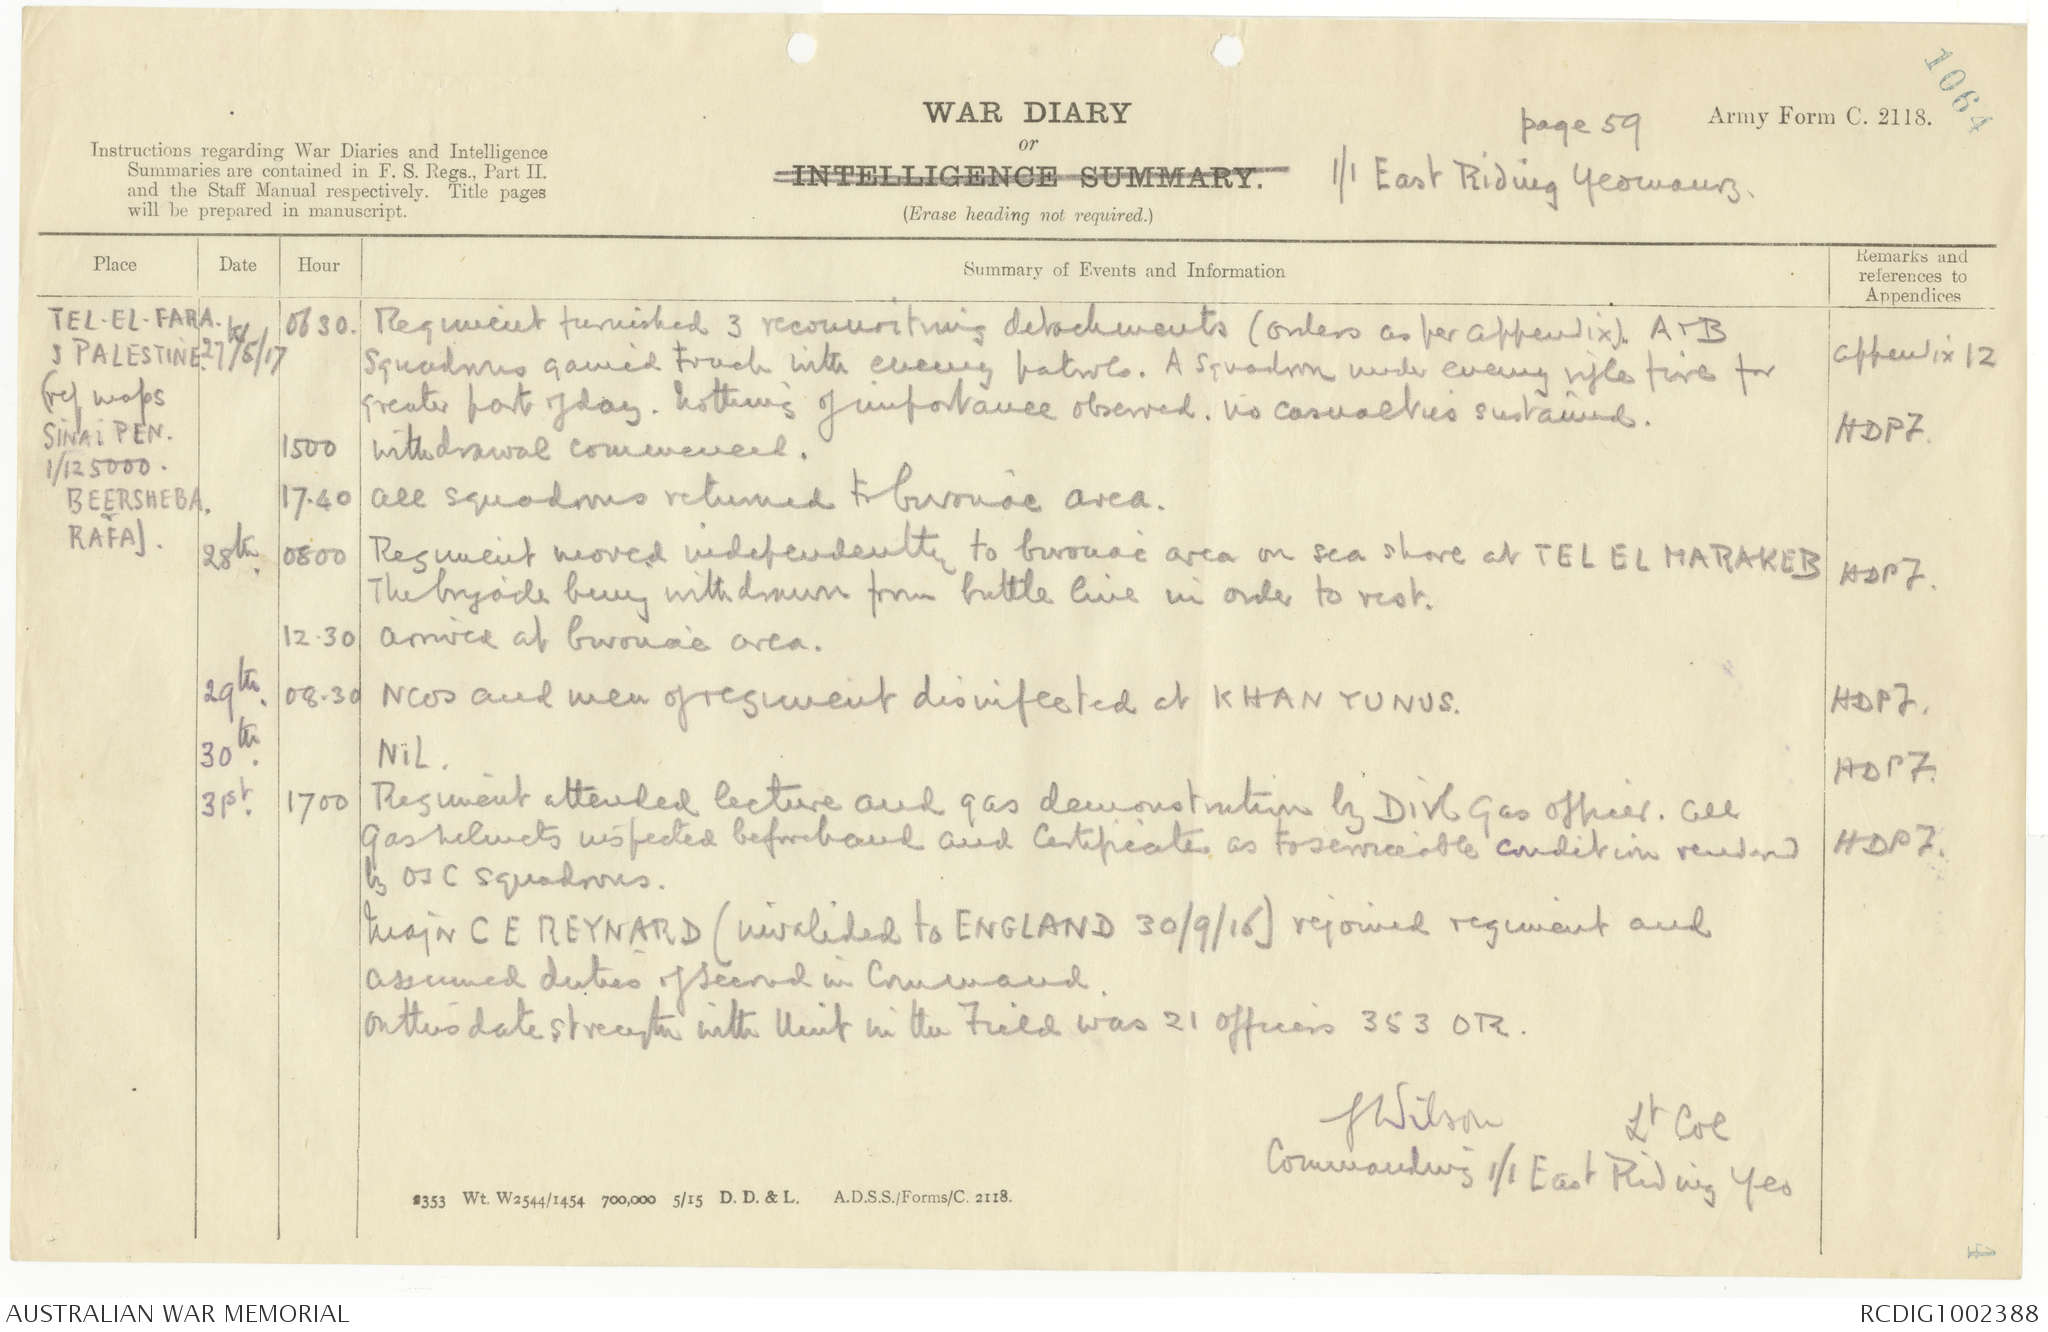 1064
WAR DIARY
or
INTELLIGENCE SUMMARY.
(Erase heading not required.)
page 59
1/1 East Riding Yeomanry.
Army Form C. 2118.
Instructions regarding War Diaries and Intelligence
Summaries are contained in F. S. Regs., Part II.
and the Staff Manual respectively. Title pages
will be prepared in manuscript.
Place Date Hour Summary of Events and Information Remarks and references to Appendices
TEL-EL-FARA. 27th/5/17 0630. Regiment furnished 3 reconnoitring detachments (orders as per appendix). A & B
PALESTINE. Squadrons gained touch with enemy patrols. A Squadron under enemy rifle fire for appendix 12
(ref maps greater part of day. Nothing of importance observed. No casualties sustained. HDPF.
SINAI PEN. 1500 withdrawal commenced.
1/125000.
BEERSHEBA. 17.40 all squadrons returned to bivouac area.
& RAFA).
28th. 0800 Regiment moved independently to bivouac area on sea shore at TEL EL MARAKEB HDPF.
The brigade being withdrawn from battle line in order to rest.
12.30 arrived at bivouac area.
29th. 08.30 NCOs and men of regiment disinfected at KHAN YUNUS. HDPF.
30th. NIL. HDPF.
31st. 1700 Regiment attended lecture and gas demonstration by Divl Gas officer. all
Gas helmets inspected beforehand and Certificates as to serviceable condition rendered HDPF.
by OsC squadrons.
Major C E REYNARD (invalided to ENGLAND 30/9/16) rejoined regiment and
assumed duties of second in Command.
On this date strength with Unit in the Field was 21 officers 353 OR.
Wilson Lt Col
Commanding 1/1 East Riding Yeo
2353 Wt. W2544/1454 700,000 5/15 D. D. & L. A.D.S.S./Forms/C. 2118.
AUSTRALIAN WAR MEMORIAL
RCDIG1002388